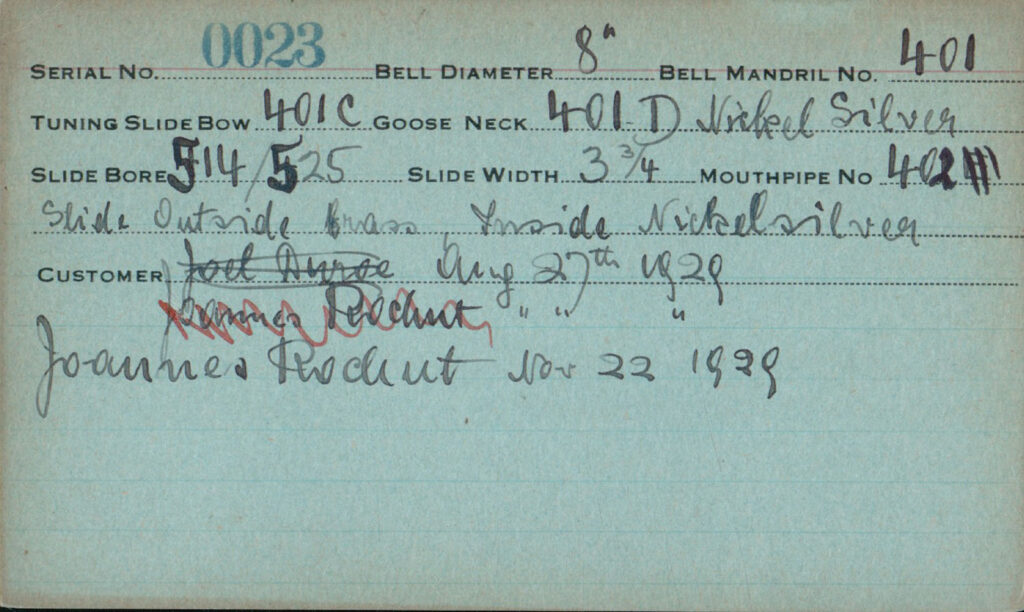 SERIAL NO. 0023 BELL DIAMETER 8" BELL MANDRIL NO. 401
TUNING SLIDE BOW 401C GOOSE NECK 401 D Nickel Silver
SLIDE BORE 514/525 SLIDE WIDTH 3 3/4 MOUTHPIPE NO 402
Slide Outside brass, Inside Nickelsilver
CUSTOMER Aug 27th 1929
Joannes Rochut " " "
Joannes Rochut Nov 22 1929